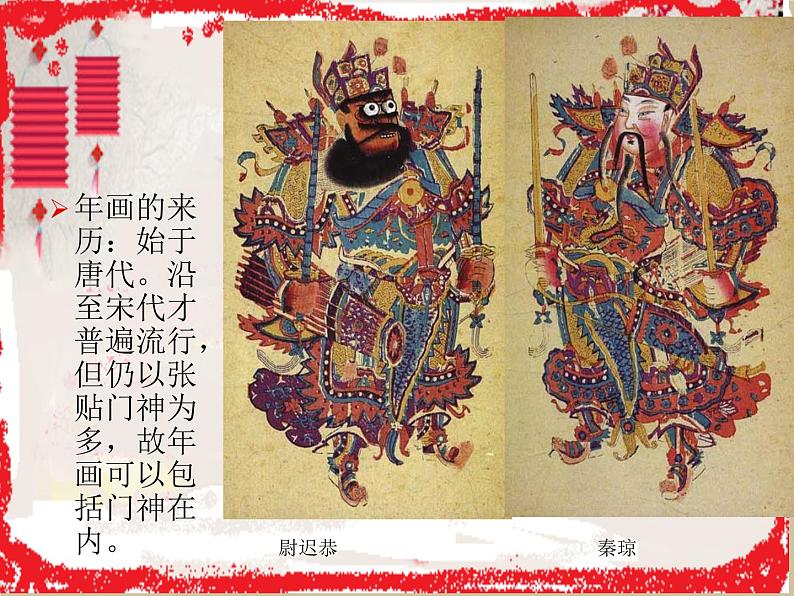 年画的来
历：始于
唐代。沿
至宋代才
普遍流行，
但仍以张
贴门神为
多，故年
画可以包
括门神在
内。
尉迟恭
秦琼